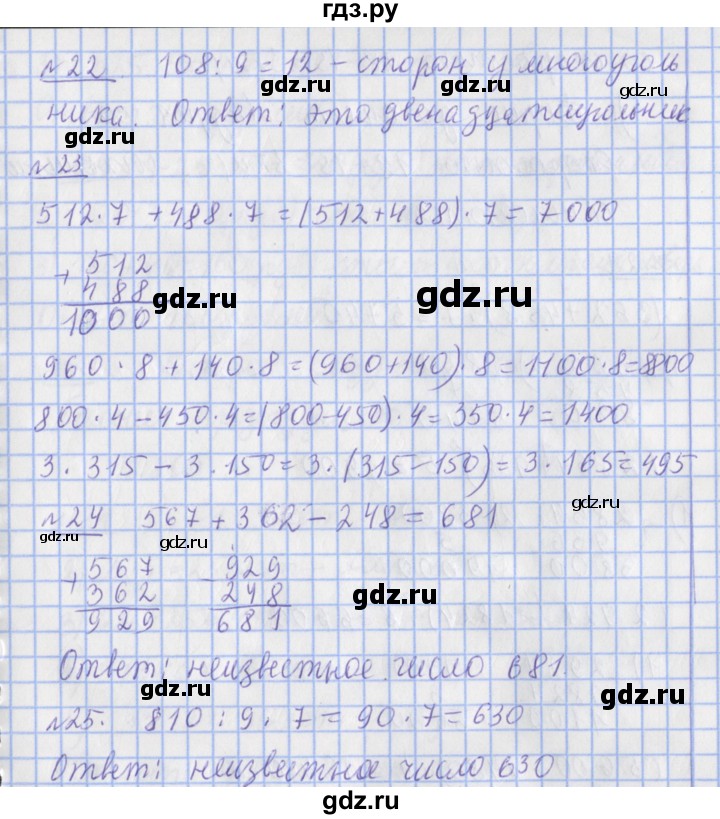 гдз.ру
№22 108 : 9 = 12 – сторон у многоуголь
gdz.ru gdz.ru
ника. Ответ: это двенадцатиугольник
gdz.ru gdz.ru gdz.ru
№23
512·7 + 488·7 = (512+488)·7 = 7000
+ 512
488
1000
gdz.ru gdz.ru
960·8 + 140·8 = (960+140)·8 = 1100·8 = 8800
800·4 – 450·4 = (800–450)·4 = 350·4 = 1400
3·315 – 3·150 = 3·(315–150) = 3·165 = 495
№24 567 + 362 – 248 = 681
gdz.ru gdz.ru gdz.ru
+ 567 – 929
362 248
929 681
gdz.ru gdz.ru
Ответ: неизвестное число 681
gdz.ru gdz.ru
№25. 810 : 9 · 7 = 90 · 7 = 630
Ответ: неизвестное число 630
gdz.ru gdz.ru
gdz.ru